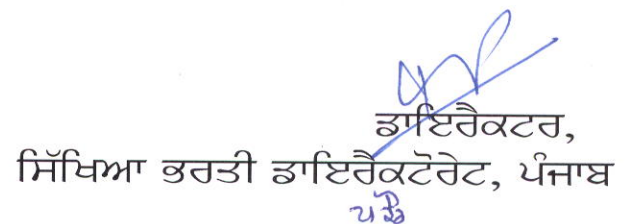 ਡਾਇਰੈਕਟਰ,
ਸਿੱਖਿਆ ਭਰਤੀ ਡਾਇਰੈਕਟੋਰੇਟ, ਪੰਜਾਬ